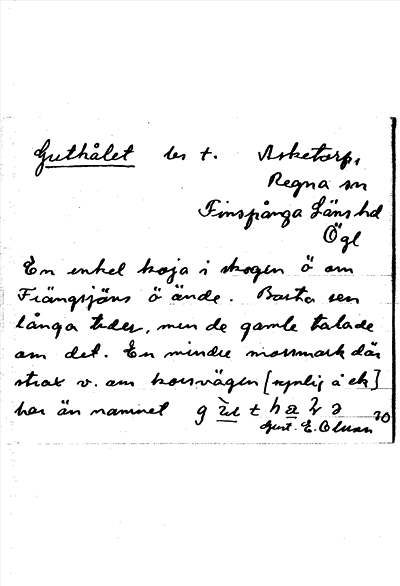 Guthålet les t. Asketorp,
Regna sn
Finspånga Läns hd
Ögl
En enkel koja i skogen ö om
Trängsjöns ö ände. Borta sen
långa tider, men de gamle talade
om det. En mindre mossmark där
strax v. om korsvägen [synlig å ek]
har än namnet
30
Gust. E. Olsson